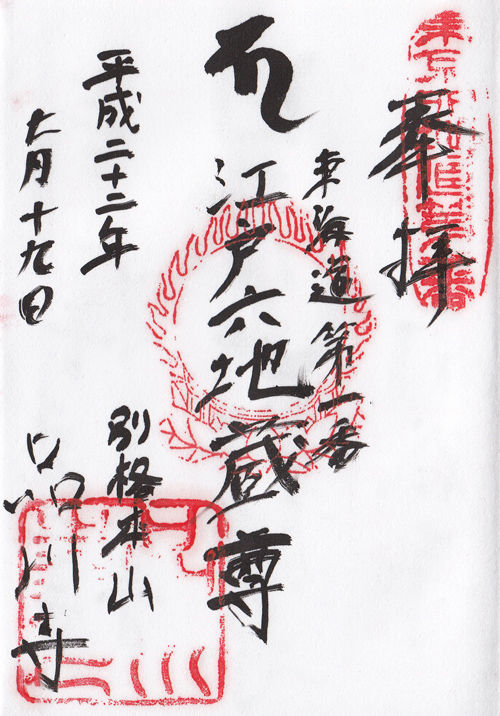 奉拝
東海道第一番
江戸六地蔵尊
平成二十二年
七月十九日
別格本山
品川寺